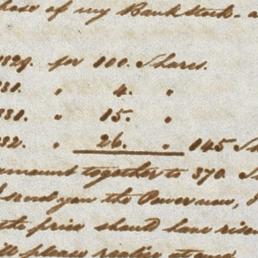 hase of my Bank Stock - a
1829. for 100. Shares.
" 4. "
" 15. "
" 26. " 045 S
amount together to 370. S
send you the Power now, I
the price should have risen
ill please realize at once